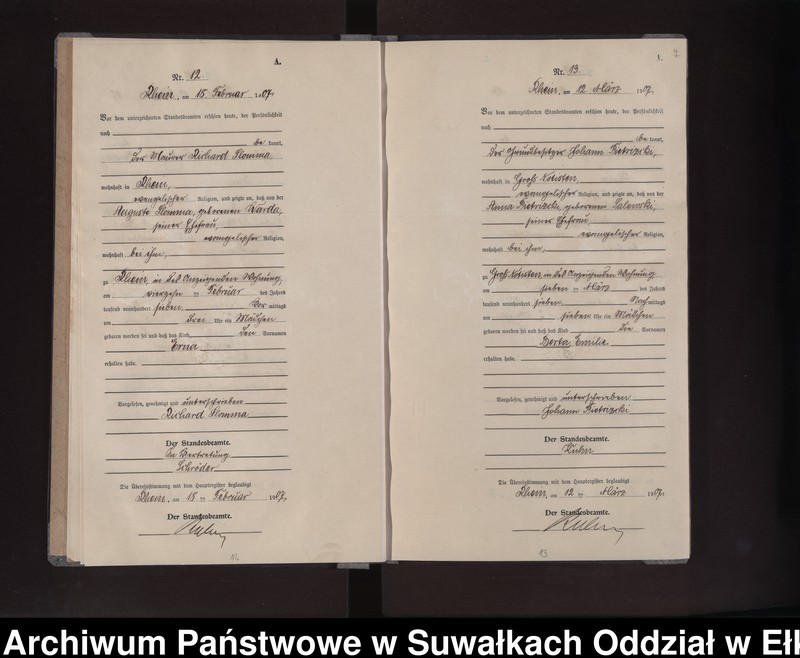 A.
Nr. 12.
Rhein, am 15 Februar 1907.
Vor dem unterzeichneten Standesbeamten erschien heute, der Persönlichkeit
nach
be kannt,
der Maurer Richard Slomma,
wohnhaft in Rhein,
evangelischer Religion, und zeigte an, daß von der
Auguste Slomma, geborenen Warda,
seiner Ehefrau,
evangelischer Religion,
wohnhaft bei ihm,
zu Rhein, in des Anzeigenden Wohnung,
am vierzehn ten Februar des Jahres
tausend neunhundert sieben Vor mittags
um drei Uhr ein Mädchen
geboren worden sei und daß das Kind den Vornamen
Erna
erhalten habe.
Vorgelesen, genehmigt und unterschrieben
Richard Slomma
Der Standesbeamte.
In Vertretung
Schröder
Die Übereinstimmung mit dem Hauptregister beglaubigt
Rhein, am 15 ten Februar 1907.
Der Standesbeamte.
Kuhn
12
A. 7
Nr. 13.
Rhein, am 12 März 1907.
Vor dem unterzeichneten Standesbeamten erschien heute, der Persönlichkeit
nach
be kannt,
der Grundbesitzer Johann Pietrizki,
wohnhaft in Groß Notisten,
evangelischer Religion, und zeigte an, daß von der
Anna Pietrizki, geborenen Salewski,
seiner Ehefrau,
evangelischer Religion,
wohnhaft bei ihm,
zu Groß Notisten, in des Anzeigenden Wohnung
am sieben ten März des Jahres
tausend neunhundert sieben Nach mittags
um sieben Uhr ein Mädchen
geboren worden sei und daß das Kind die Vornamen
Berta Emilie
erhalten habe.
Vorgelesen, genehmigt und unterschrieben
Johann Pietrizki
Der Standesbeamte.
Kuhn
Die Übereinstimmung mit dem Hauptregister beglaubigt
Rhein, am 12 ten März 1907.
Der Standesbeamte.
Kuhn
13
Archiwum Państwowe w Suwałkach Oddział w Ełk